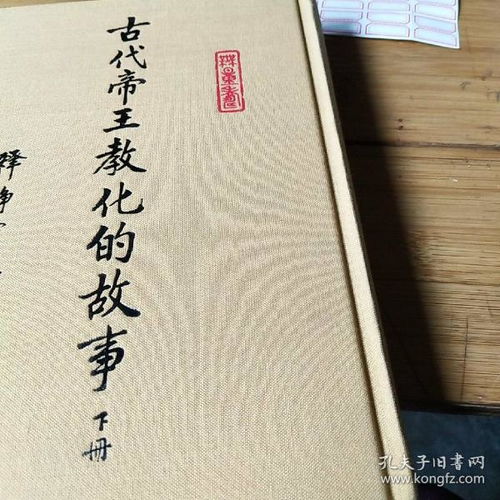 古代帝王教化的故事
下冊
释净空
孔夫子旧书网
www.kongfz.com